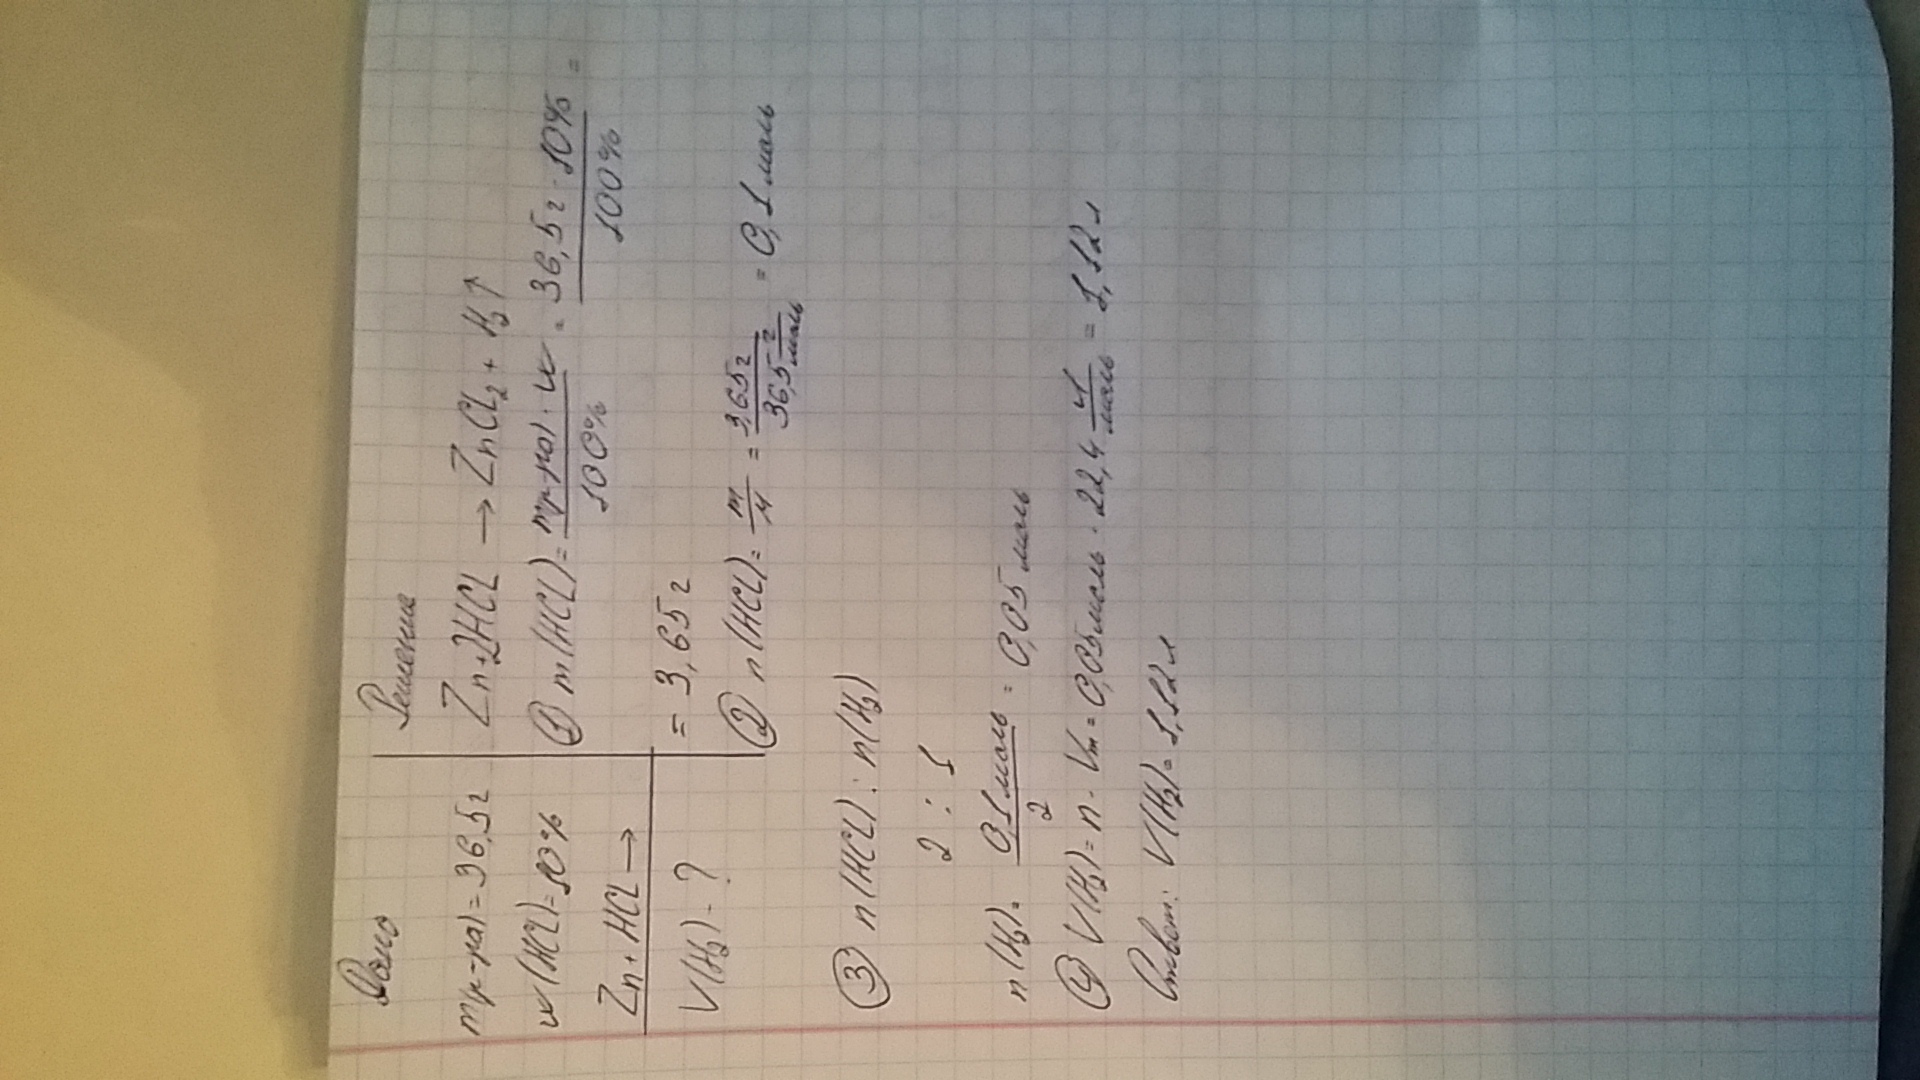 Дано
mр-ра) = 36,5 г
w(HCL) = 10%
Zn + HCL →
V(H2) - ?
Решение
Zn + 2HCL → ZnCL2 + H2↑
① m(HCL) = mр-ра) · w / 100% = 36,5 г · 10% / 100% =
= 3,65 г
② n(HCL) = m / M = 3,65 г / 36,5 г/моль = 0,1 моль
③ n(HCL) : n(H2)
2 : 1
n(H2) = 0,1 моль / 2 = 0,05 моль
④ V(H2) = n · Vm = 0,05 моль · 22,4 л/моль = 1,12 л
Ответ: V(H2) = 1,12 л